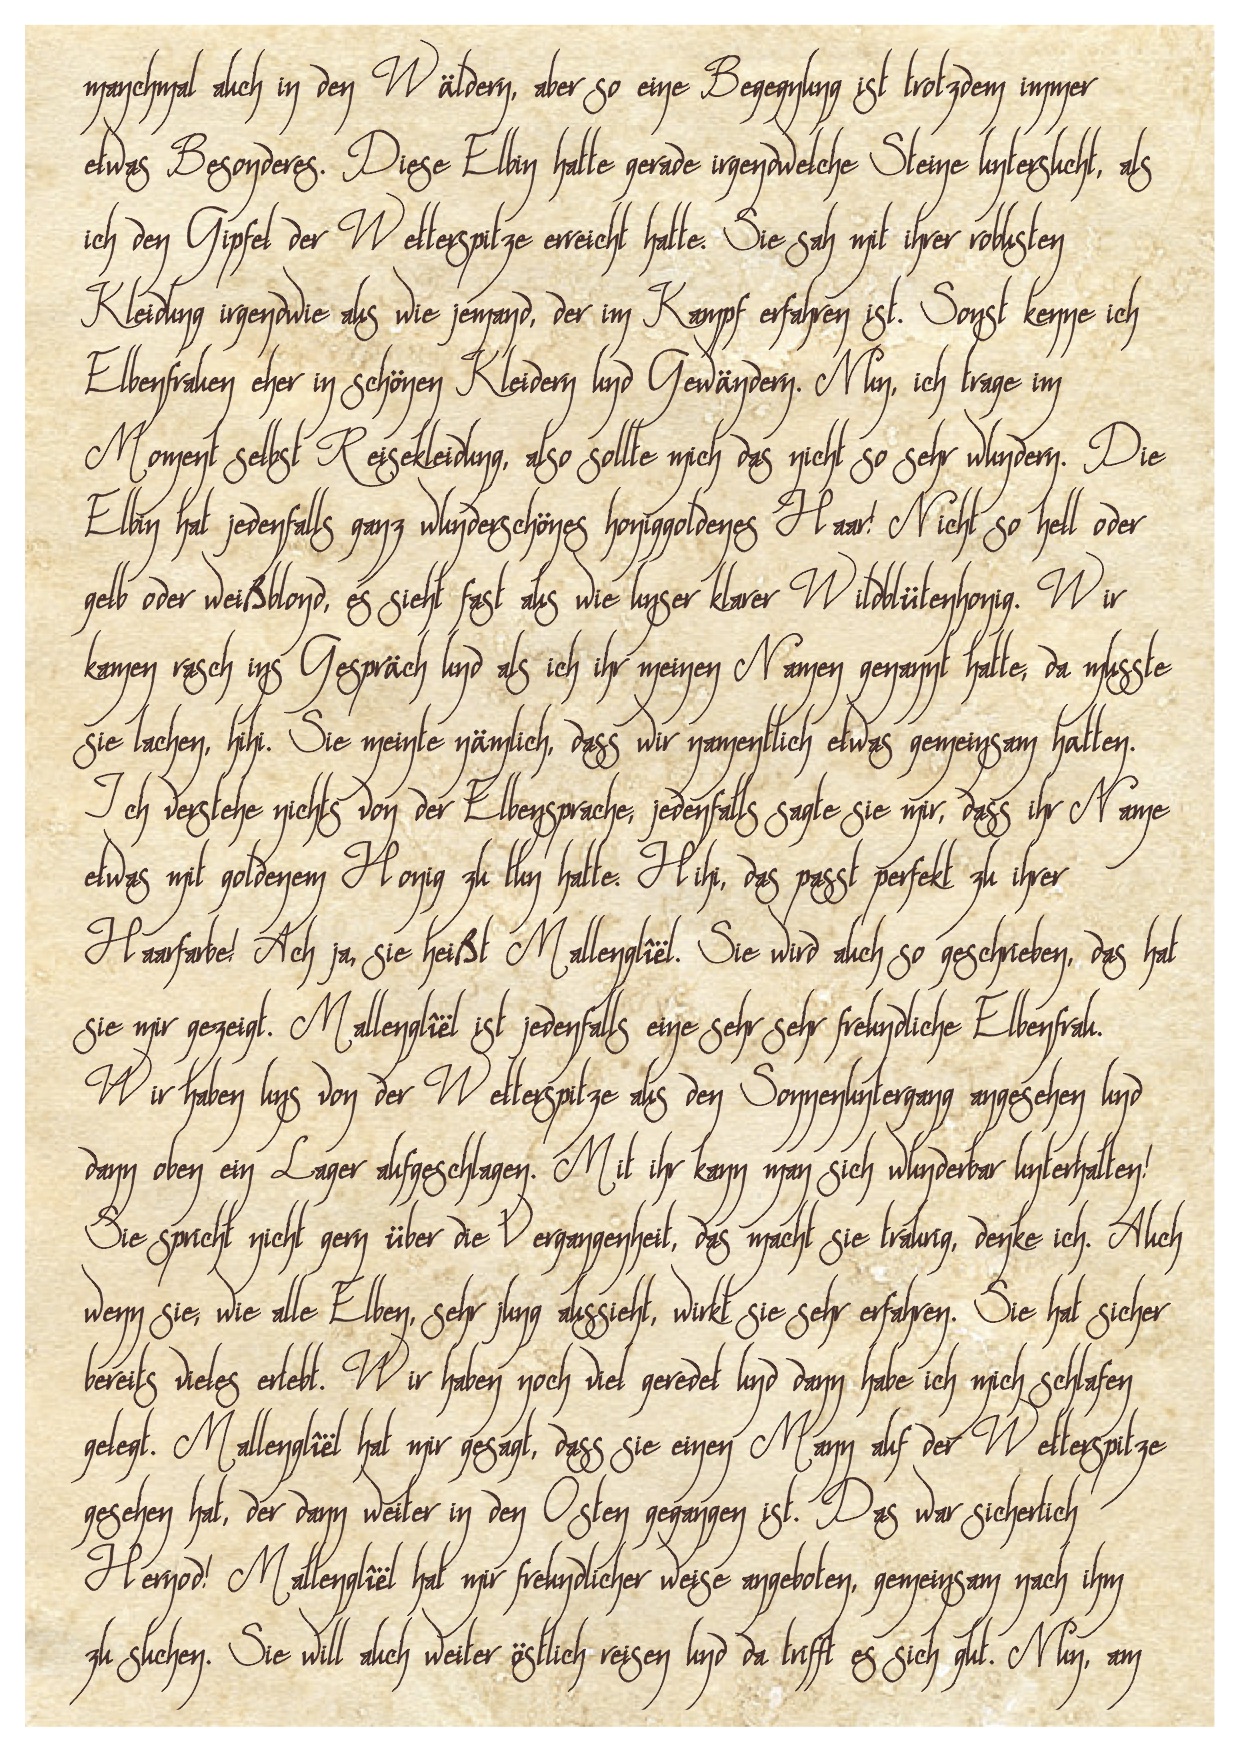 manchmal auch in den Wäldern, aber so eine Begegnung ist trotzdem immer
etwas Besonderes. Diese Elbin hatte gerade irgendwelche Steine untersucht, als
ich den Gipfel der Wetterspitze erreicht hatte. Sie sah mit ihrer robusten
Kleidung irgendwie aus wie jemand, der im Kampf erfahren ist. Sonst kenne ich
Elbenfrauen eher in schönen Kleidern und Gewändern. Nun, ich trage im
Moment selbst Reisekleidung, also sollte mich das nicht so sehr wundern. Die
Elbin hat jedenfalls ganz wunderschönes honiggoldenes Haar! Nicht so hell oder
gelb oder weißblond, es sieht fast aus wie unser klarer Wildblütenhonig. Wir
kamen rasch ins Gespräch und als ich ihr meinen Namen genannt hatte, da musste
sie lachen, hihi. Sie meinte nämlich, dass wir namentlich etwas gemeinsam hatten.
Ich verstehe nichts von der Elbensprache, jedenfalls sagte sie mir, dass ihr Name
etwas mit goldenem Honig zu tun hatte. Hihi, das passt perfekt zu ihrer
Haarfarbe! Ach ja, sie heißt Mallenglîël. Sie wird auch so geschrieben, das hat
sie mir gezeigt. Mallenglîël ist jedenfalls eine sehr sehr freundliche Elbenfrau.
Wir haben uns von der Wetterspitze aus den Sonnenuntergang angesehen und
dann oben ein Lager aufgeschlagen. Mit ihr kann man sich wunderbar unterhalten!
Sie spricht nicht gern über die Vergangenheit, das macht sie traurig, denke ich. Auch
wenn sie, wie alle Elben, sehr jung aussieht, wirkt sie sehr erfahren. Sie hat sicher
bereits vieles erlebt. Wir haben noch viel geredet und dann habe ich mich schlafen
gelegt. Mallenglîël hat mir gesagt, dass sie einen Mann auf der Wetterspitze
gesehen hat, der dann weiter in den Osten gegangen ist. Das war sicherlich
Hernod! Mallenglîël hat mir freundlicher weise angeboten, gemeinsam nach ihm
zu suchen. Sie will auch weiter östlich reisen und da trifft es sich gut. Nun, am